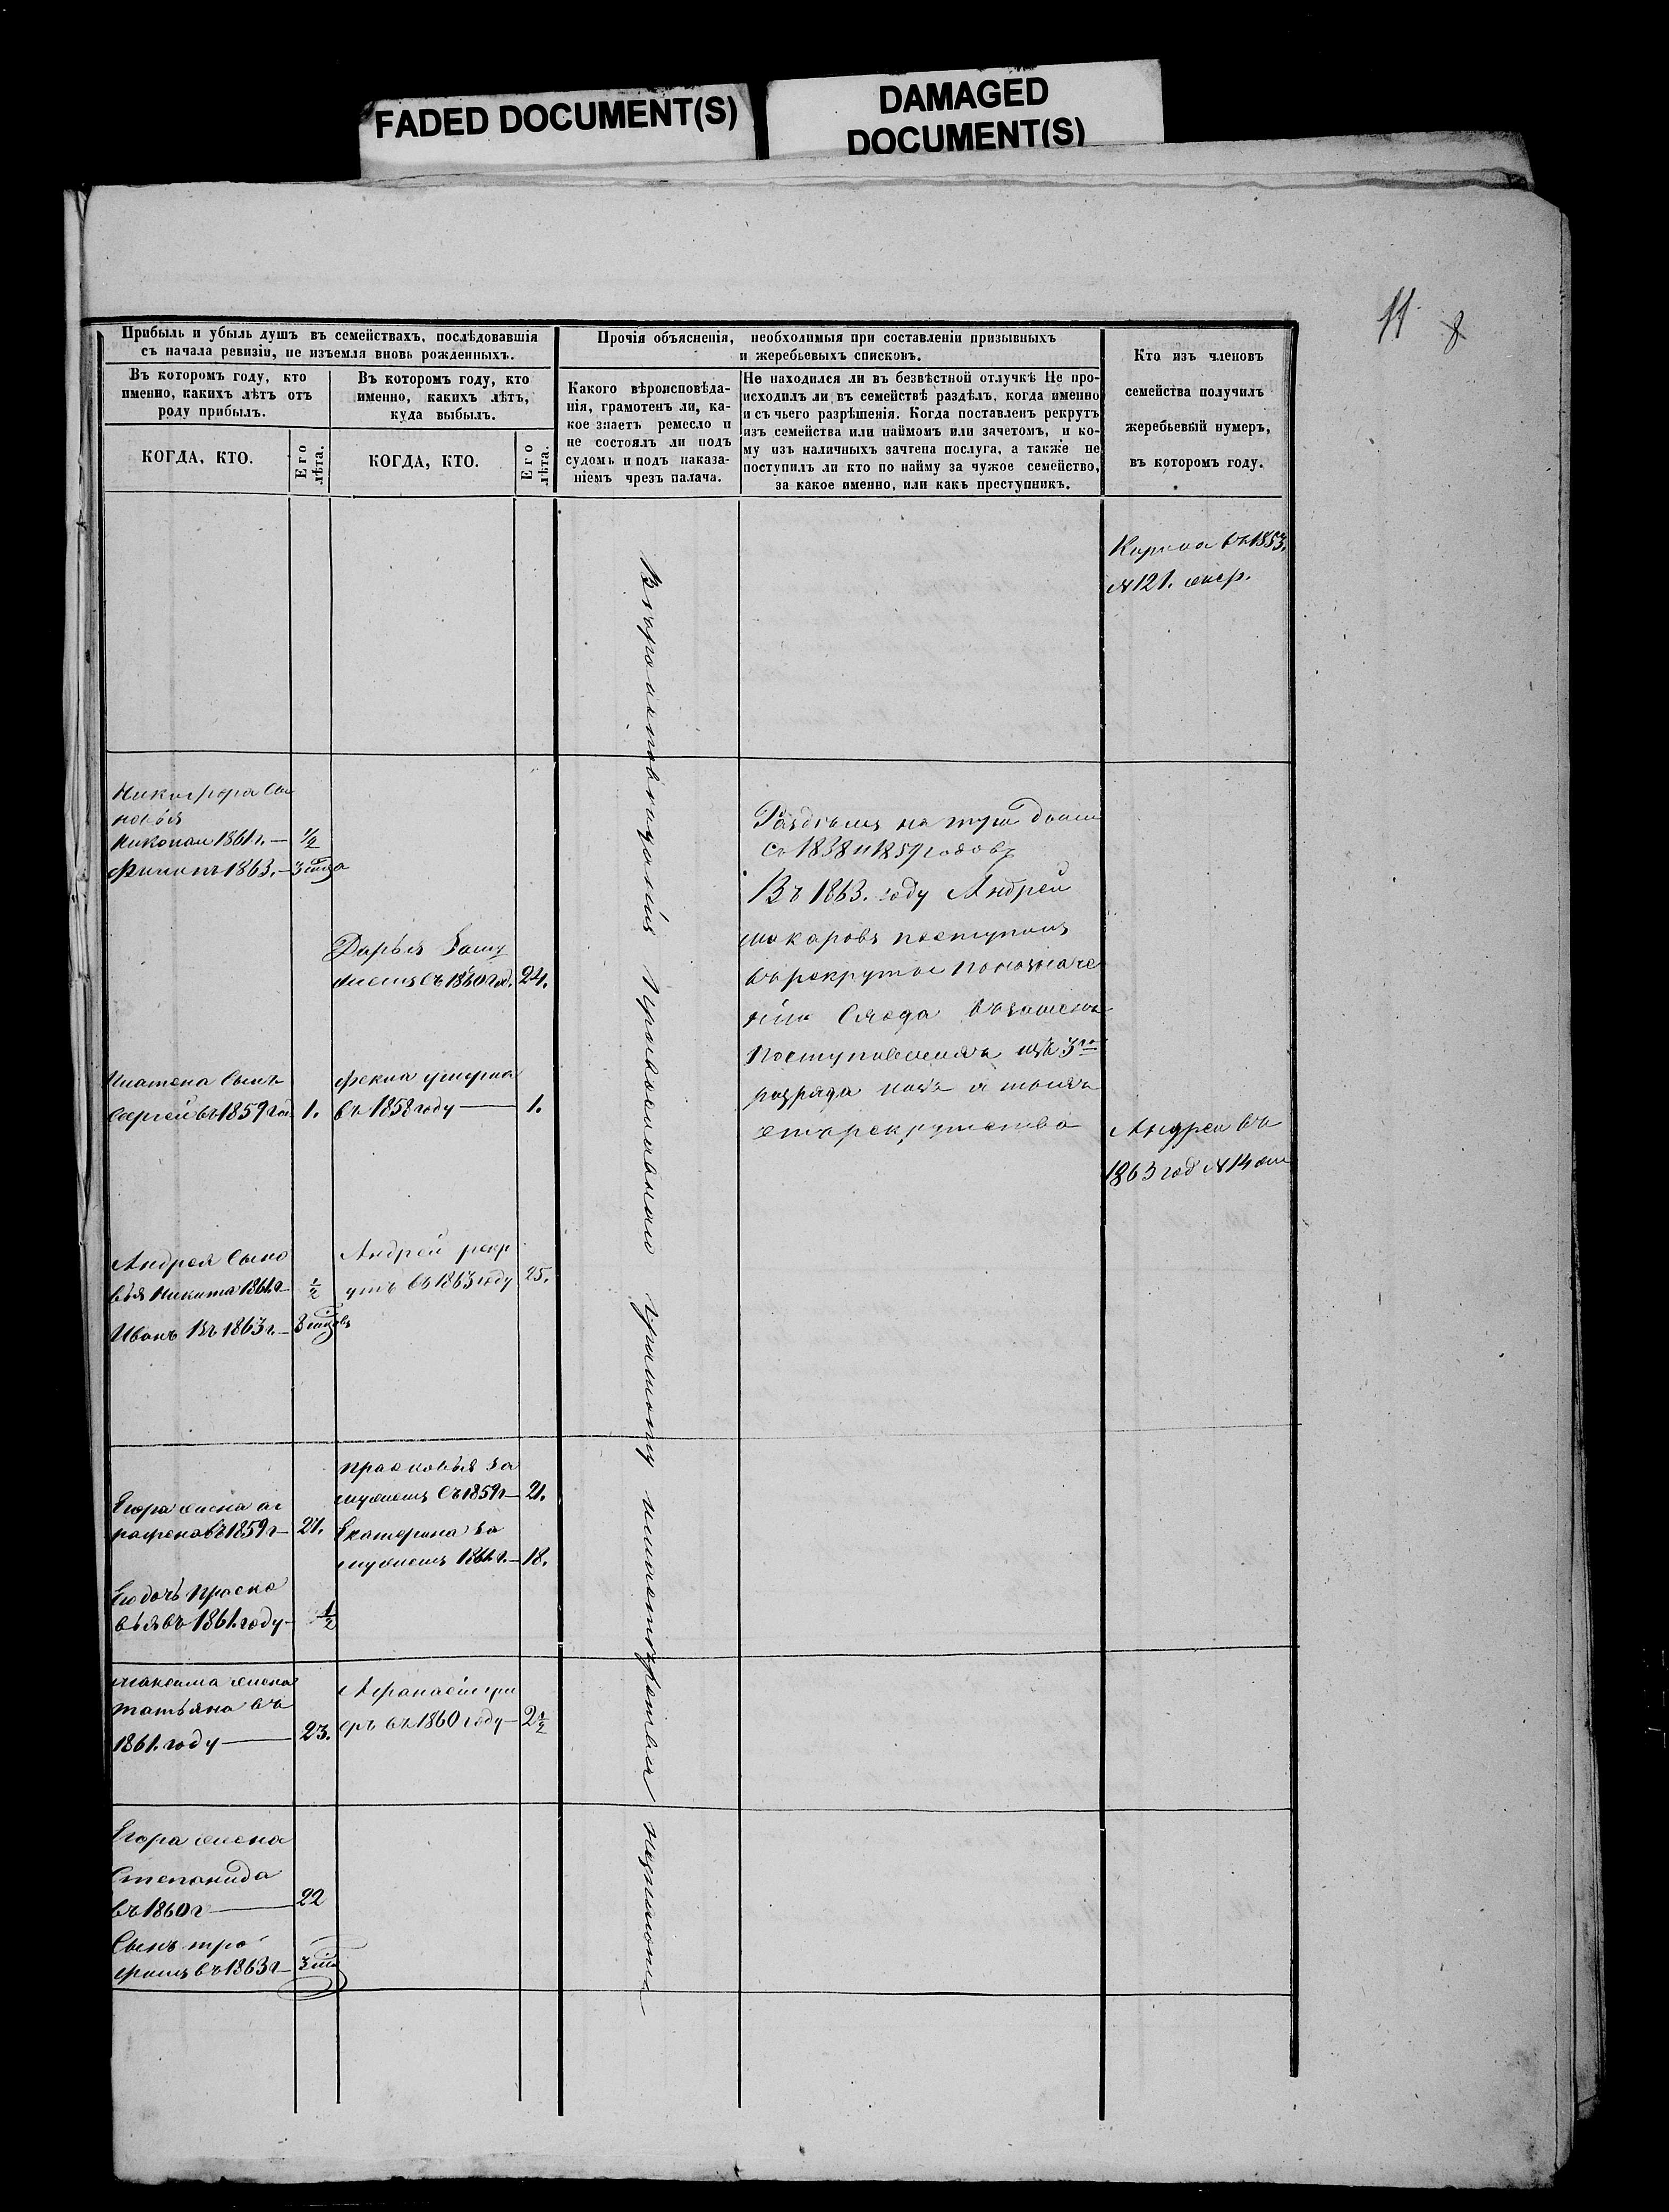 FADED DOCUMENT(S)
DAMAGED
DOCUMENT(S)
11
8
Прибыль и убыль душъ въ семействахъ, послѣдовавшія
съ начала ревизіи, не изъемля вновь рожденныхъ.
Въ которомъ году, кто
именно, какихъ лѣтъ отъ
роду прибылъ.
КОГДА, КТО.
Его
лѣта.
Въ которомъ году, кто
именно, какихъ лѣтъ,
куда выбылъ.
КОГДА, КТО.
Его
лѣта.
Прочія объясненія, необходимыя при составленіи призывныхъ
и жеребьевыхъ списковъ.
Какого вѣроисповѣда-
нія, грамотенъ ли, ка-
кое знаетъ ремесло и
не состоялъ ли подъ
судомъ и подъ наказа-
ніемъ чрезъ палача.
Не находился ли въ безвѣстной отлучкѣ Не про-
исходилъ ли въ семействѣ раздѣлъ, когда именно
и съ чьего разрѣшенія. Когда поставленъ рекрутъ
изъ семейства или наймомъ или зачетомъ, и ко-
му изъ наличныхъ зачтена послуга, а также не
поступилъ ли кто по найму за чужое семейство,
за какое именно, или какъ преступникъ.
Кто изъ членовъ
семейства получилъ
жеребьевый нумеръ,
въ которомъ году.
въ 1853.
№ 121.
Никифора Сы
новья
Никонаи 1861 г. — 1/2
Филипъ 1863. — 3
Дарья Заму
жемъ съ 1860 год. 24.
Платона Сынъ
Сергей въ 1859 год 1.
Фекла умерла
въ 1858 году — 1.
Андрея Сыно
вья Никита 1861 г — 1/2
Иванъ Въ 1863 г. — 3
Андрей рекр
утъ въ 1863 году 25.
Прасковья за
мужемъ съ 1859 г — 21.
Егора жена аг
рафена въ 1859 г — 21.
Екатерина за
мужемъ 1861. г. — 18.
Ею дочь Праско
вья въ 1861. году — 1/2
Максима жена
татьяна въ
1861. году — 23.
Афанасій уме
ръ въ 1860 году — 2 1/2
Егора жена
Степанида
въ 1860 г — 22
Сынъ тро
фимъ въ 1863 г — 3
Вѣроисповѣданія Православнаго грамоту
Раздѣлъ на три
съ 1838 и 1859 годовъ
Въ 1863. году Андрей
Макаровъ поступилъ
въ рекруты по назначе
нію Съезда
поступившемъ изъ 3го
разряда
отъ рекрутства
Андрей въ
1863 год № 14